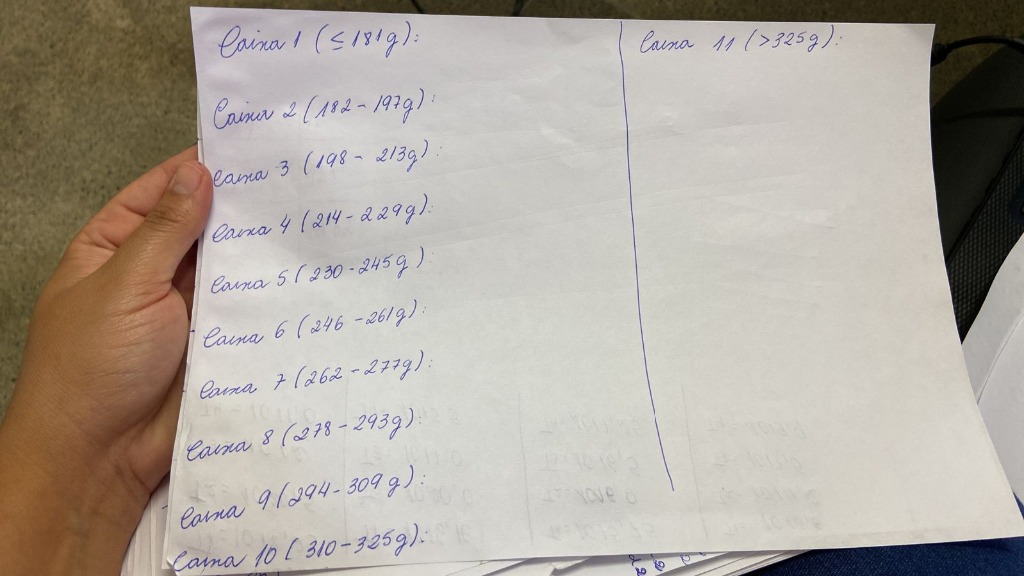 Caixa 1 (≤181g):
Caixa 2 (182-197g):
Caixa 3 (198- 213g):
Caixa 4 (214-229g):
Caixa 5 (230-245g):
Caixa 6 (246-261g):
Caixa 7 (262-277g):
Caixa 8 (278-293g):
Caixa 9 (294-309g):
Caixa 10 (310-325g):
Caixa 11 (>325g):